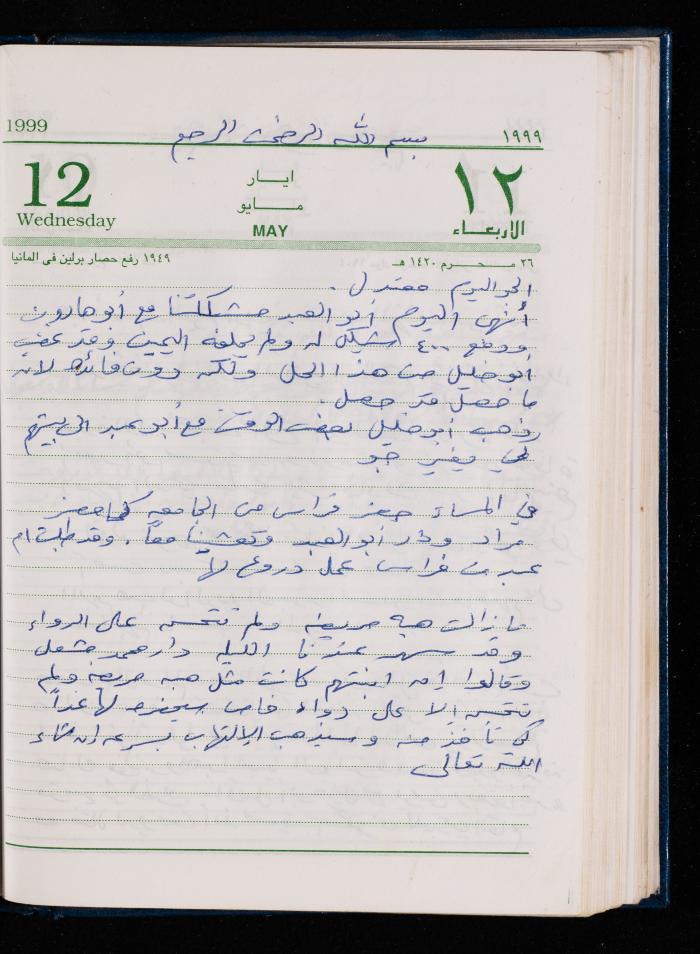 1999
بسم الله الرحمن الرحيم
١٩٩٩
12
Wednesday
ايـار
مـايو
MAY
١٢
الاربعـاء
١٩٤٩ رفع حصار برلين فى المانيا
٢٦ محـرم ١٤٢٠ هـ
الجو اليوم معتدل .
أنهى اليوم أبو العبد مشكلتنا مع أبو هارون
ودفع ٤٠٠ شيكل له ولم يحلفه اليمين وقد غضب
أبو خليل من هذا الحل ولكنه دون فائده لأنه
ما حصل قد حصل .
وذهب أبو خليل نصف الوقت مع أبو عبد الى بيتهم
لكي يغير جو
في المساء حضر فراس من الجامعه كما حضر
مراد ودار أبو العبد وتعشينا معاً . وقد طلبت ام
عبد من فراس عمل دروع لها
ما زالت هبه مريضه ولم تتحسن على الدواء
وقد سهر عندنا الليله دار محمد مشعل
وقالوا إن ابنتهم كانت مثل هبه مريضه ولم
تتحسن إلا على دواء خاص سيحضره لها غداً
كي تأخذ منه وسيذهب الإلتهاب بسرعه ان شاء
الله تعالى